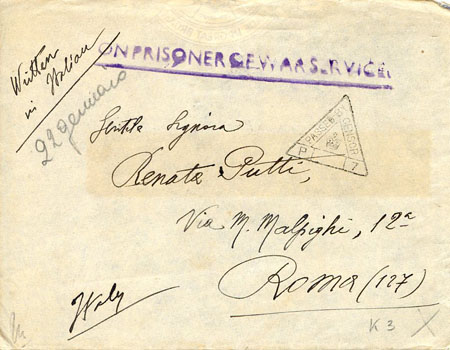 Written
in Italian
ON PRISONER OF WAR SERVICE.
22 gennaio
Gentile Signora
PASSED BY CENSOR
P 7
Renata Putti,
Via M. Malpighi, 12a
Roma (127)
Italy
K 3 X